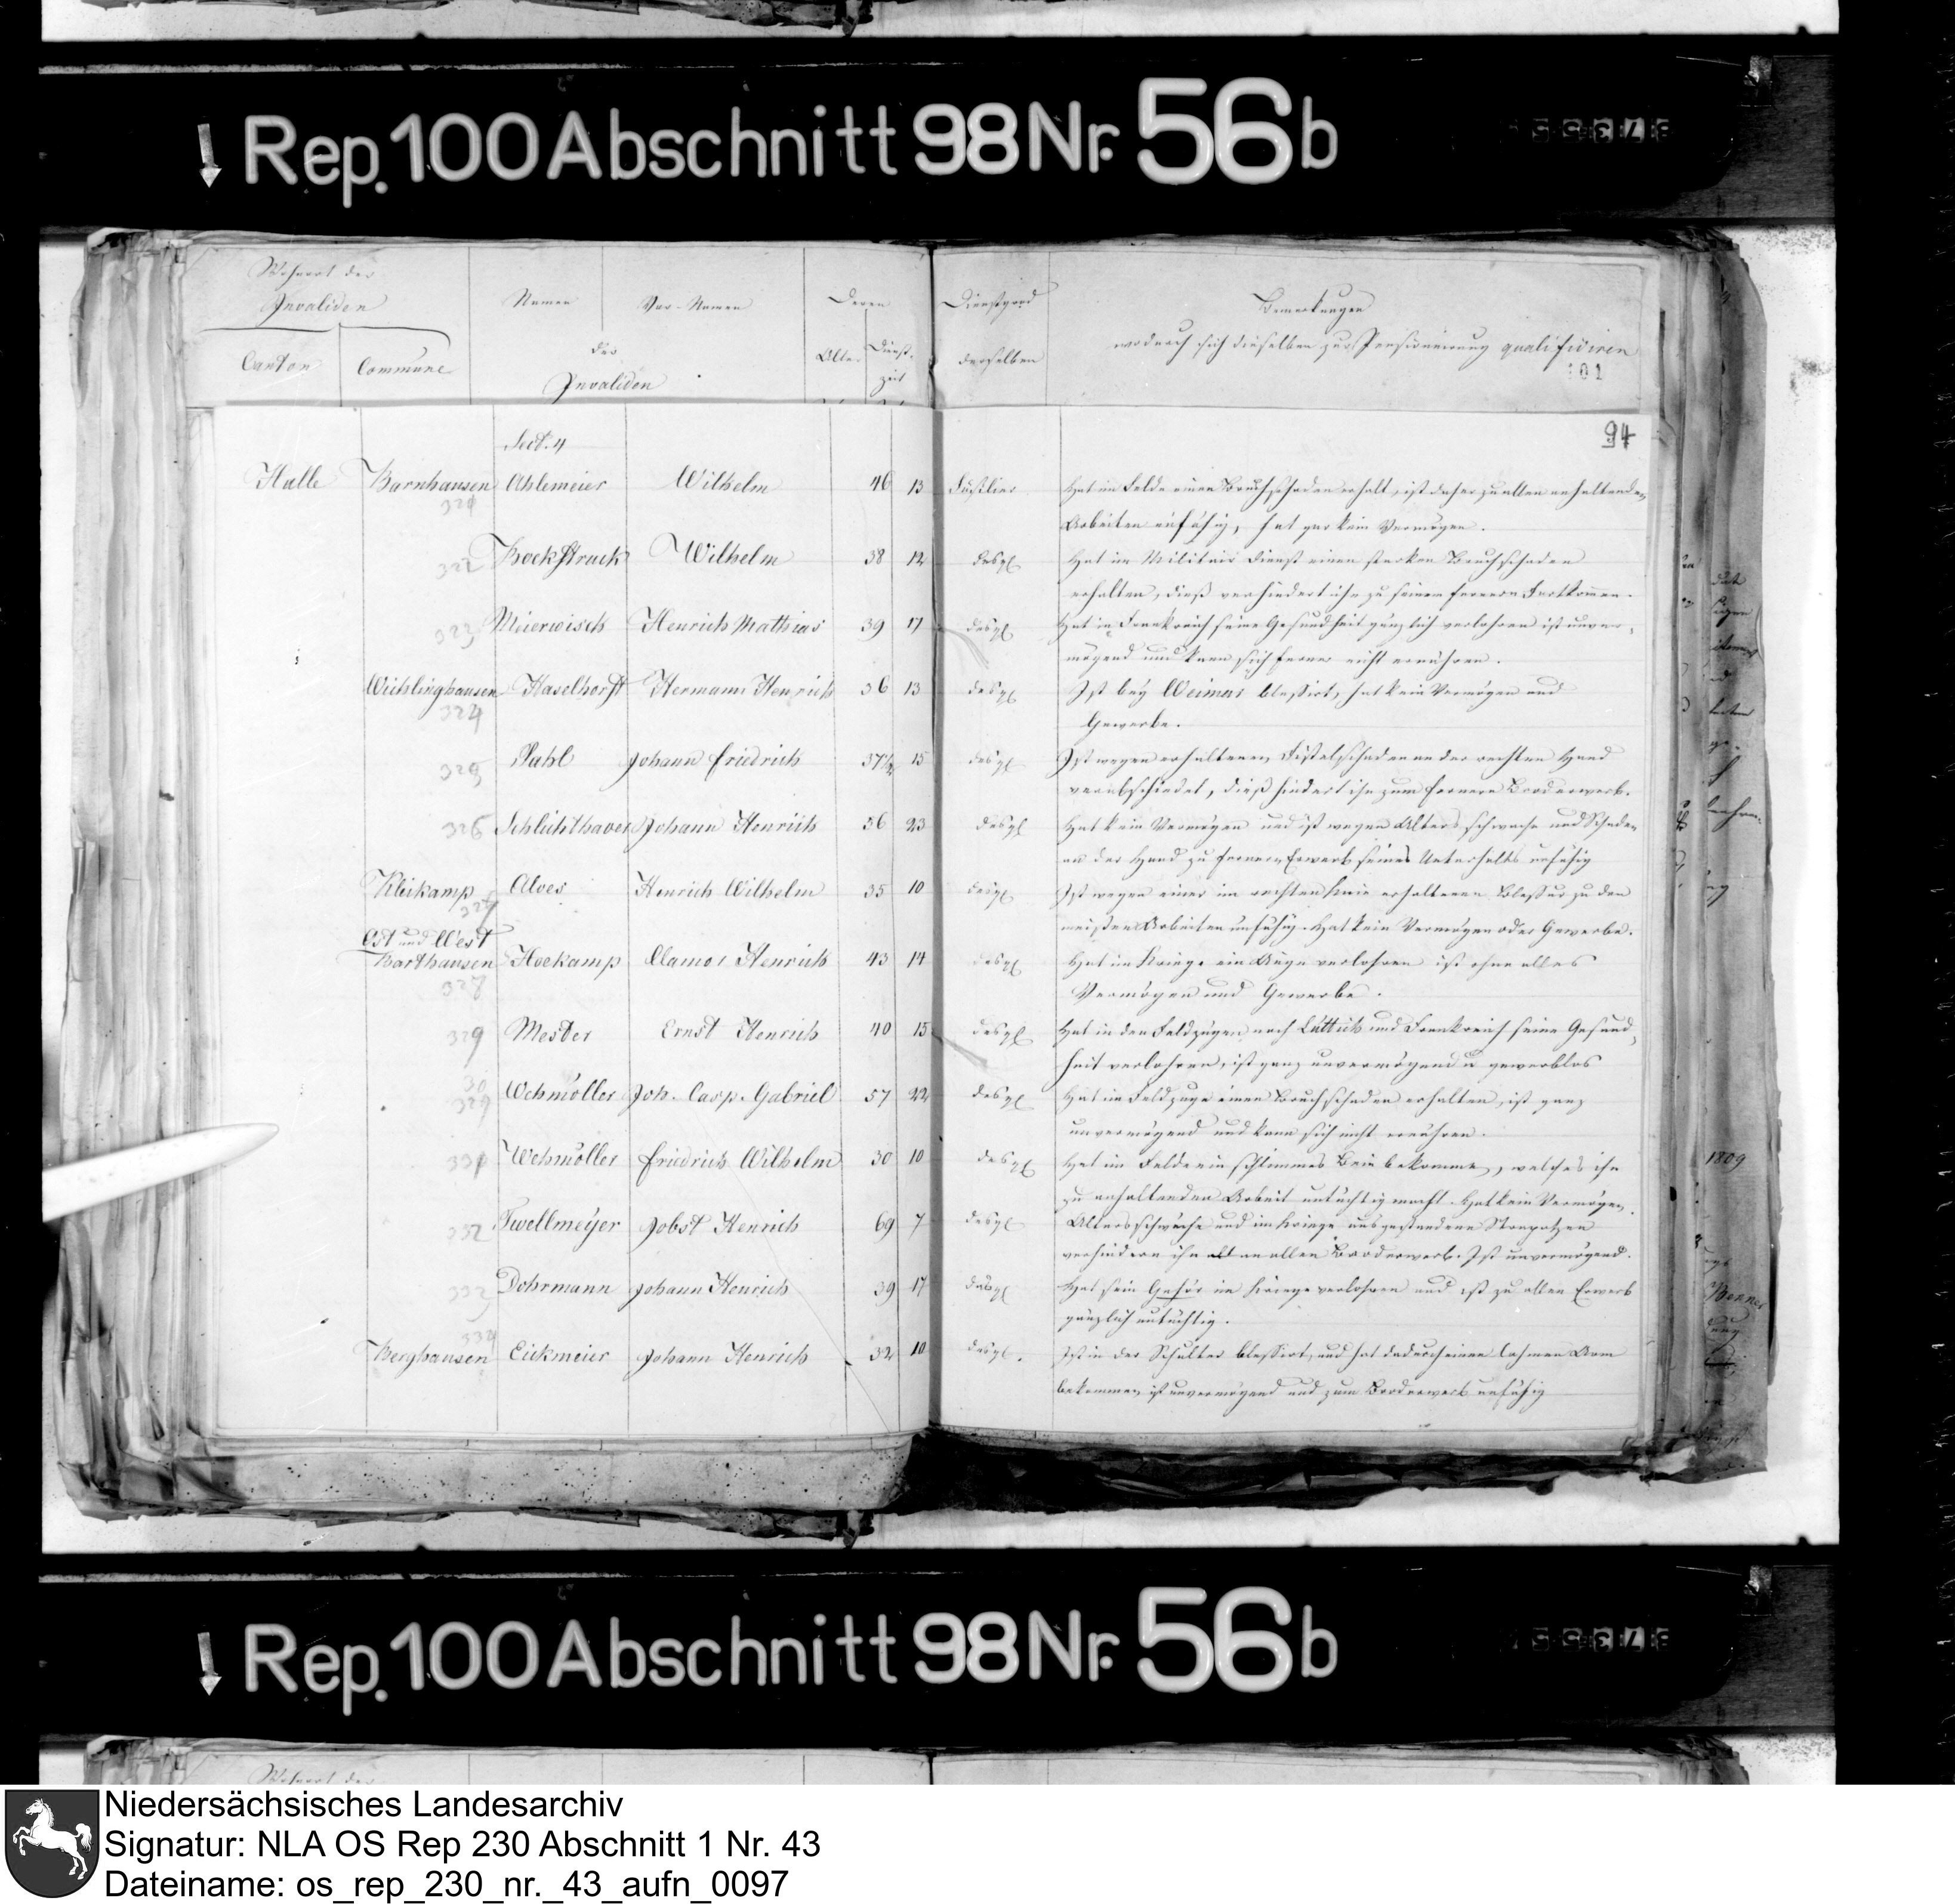 Rep. 100 Abschnitt 98 Nr. 56b
Wohnort der
Invaliden
Canton
Commune
Namen
Vor-Namen
der
Invaliden
Deren
Alter
Dienst-
zeit
Dienstgrad
derselben
Bemerkungen
wodurch sich dieselben zur Pensionierung qualificiren
101
94
Sect. 4
Halle Barnhausen Ahlemeier Wilhelm 46 13 Füsilier Hat im Felde einen Bruchschaden erhalt, ist daher zu allen anhaltenden
321 Arbeiten unfähig, hat gar kein Vermögen.
322 Bockstruck Wilhelm 38 12 desgl Hat im Militair Dienst einen starken Bruchschaden
erhalten, dieß verhindert ihn zu seinem fernern Fortkommen.
323 Meierwisch Henrich Mathias 39 17 desgl Hat in Frankreich seine Gesundheit gänzlich verlohren ist unver-
mögend und kann sich ferner nicht ernähren.
Wichlinghausen Haselhorst Hermann Henrich 36 13 desgl Ist bey Weimar blessirt, hat kein Vermögen und
324 Gewerbe.
325 Pahl Johann Friedrich 37½ 15 desgl Ist wegen erhaltenen Fistelschaden an der rechten Hand
verabschiedet, dieß hindert ihn zum fernern Broderwerb.
326 Schlichthaver Johann Henrich 36 23 desgl Hat kein Vermögen und ist wegen Alters schwäche und Schaden
an der Hand zu fernern Erwerb seines Unterhalts unfähig
Kleikamp Alves Henrich Wilhelm 35 10 desgl Ist wegen einer im rechten Knie erhaltenen Blessur zu den
327 meisten Arbeiten unfähig. Hat kein Vermögen oder Gewerbe.
Ost und West
Barthausen Hoekamp Clamor Henrich 43 14 desgl Hat im Kriege ein Auge verlohren ist ohne alles
328 Vermögen und Gewerbe.
329 Mester Ernst Henrich 40 15 desgl Hat in den Feldzügen nach Lüttich und Frankreich seine Gesund-
heit verlohren, ist ganz unvermögend u gewerblos
30
329 Wehmöller Joh. Casp. Gabriel 57 22 desgl Hat im Feldzuge einen Bruchschaden erhalten, ist ganz
unvermögend und kann sich nicht ernähren.
331 Wehmöller Friedrich Wilhelm 30 10 desgl Hat im Felde ein schlimmes Bein bekommen, welches ihn
zu anhaltender Arbeit untüchtig macht. Hat kein Vermögen.
332 Twellmeyer Jobst Henrich 69 7 desgl Altersschwäche und im Kriege ausgestandene Strapatzen
verhindern ihn an allen Broderwerb. Ist unvermögend.
333 Dohrmann Johann Henrich 39 17 desgl Hat sein Gehör im Kriege verlohren und ist zu allen Erwerb
gänzlich untüchtig.
334
Berghausen Eickmeier Johann Henrich 32 10 desgl. Ist in der Schulter blessirt, und hat dadurch einen lahmen Arm
bekommen ist unvermögend und zum Broderwerb unfähig
1809
Rep. 100 Abschnitt 98 Nr. 56b
Wohnort der
Niedersächsisches Landesarchiv
Signatur: NLA OS Rep 230 Abschnitt 1 Nr. 43
Dateiname: os_rep_230_nr._43_aufn_0097